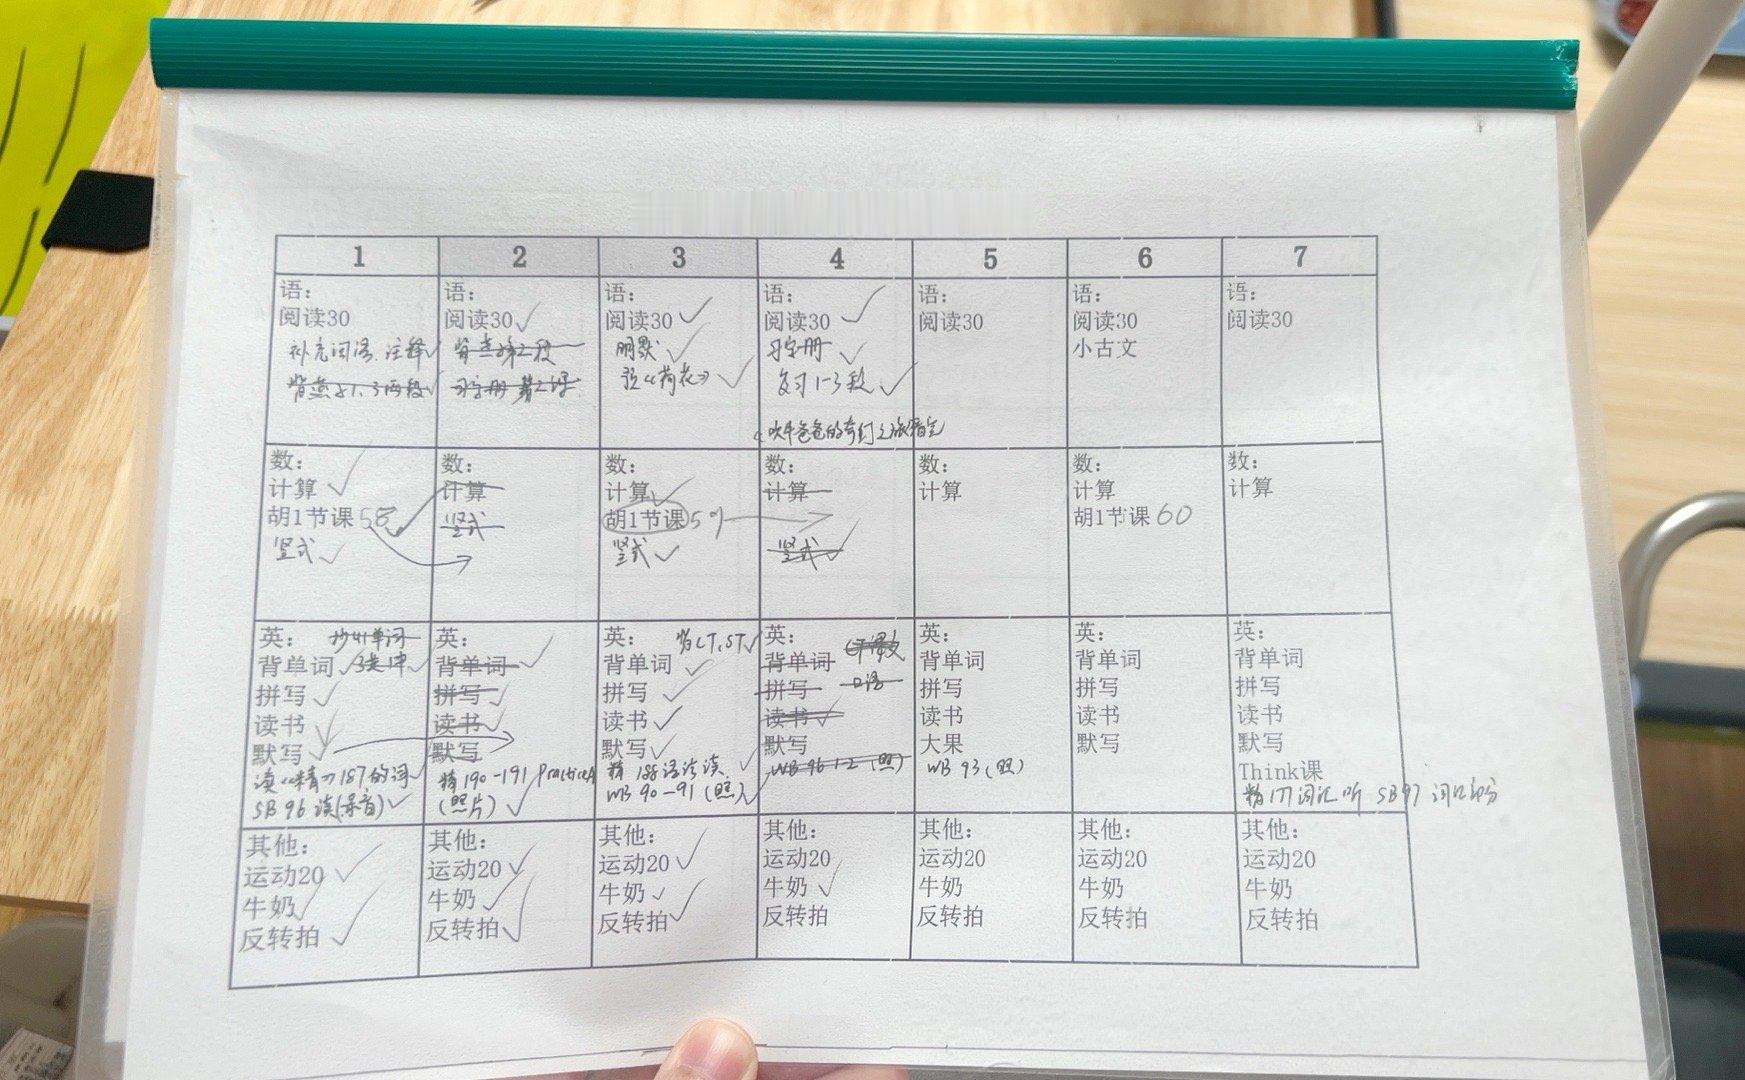 1 2 3 4 5 6 7
语：
阅读30
补充词语、注释
背燕子1、3两段
语：
阅读30
背燕子第2段
习字册 第2课
语：
阅读30
朗默
预《荷花》
语：
阅读30
习字册
复习1-3段
语：
阅读30
语：
阅读30
小古文
语：
阅读30
数：
计算
胡1节课58
竖式
数：
计算
竖式
数：
计算
胡1节课59
竖式
数：
计算
竖式
数：
计算
数：
计算
胡1节课60
数：
计算
英： 抄 单词
背单词
拼写
读书
默写
读《精》187的词
SB 96 读(录音)
英：
背单词
拼写
读书
默写
精190-191 Practice
(照片)
英： 背CT、ST
背单词
拼写
读书
默写
精188语法读
WB 90-91(照)
英：
背单词
口语
拼写
读书
默写
WB 96 1-2 (照)
英：
背单词
拼写
读书
大果
WB 93(照)
英：
背单词
拼写
读书
默写
英：
背单词
拼写
读书
默写
Think课
精177词汇听 SB97
其他：
运动20
牛奶
反转拍
其他：
运动20
牛奶
反转拍
其他：
运动20
牛奶
反转拍
其他：
运动20
牛奶
反转拍
其他：
运动20
牛奶
反转拍
其他：
运动20
牛奶
反转拍
其他：
运动20
牛奶
反转拍